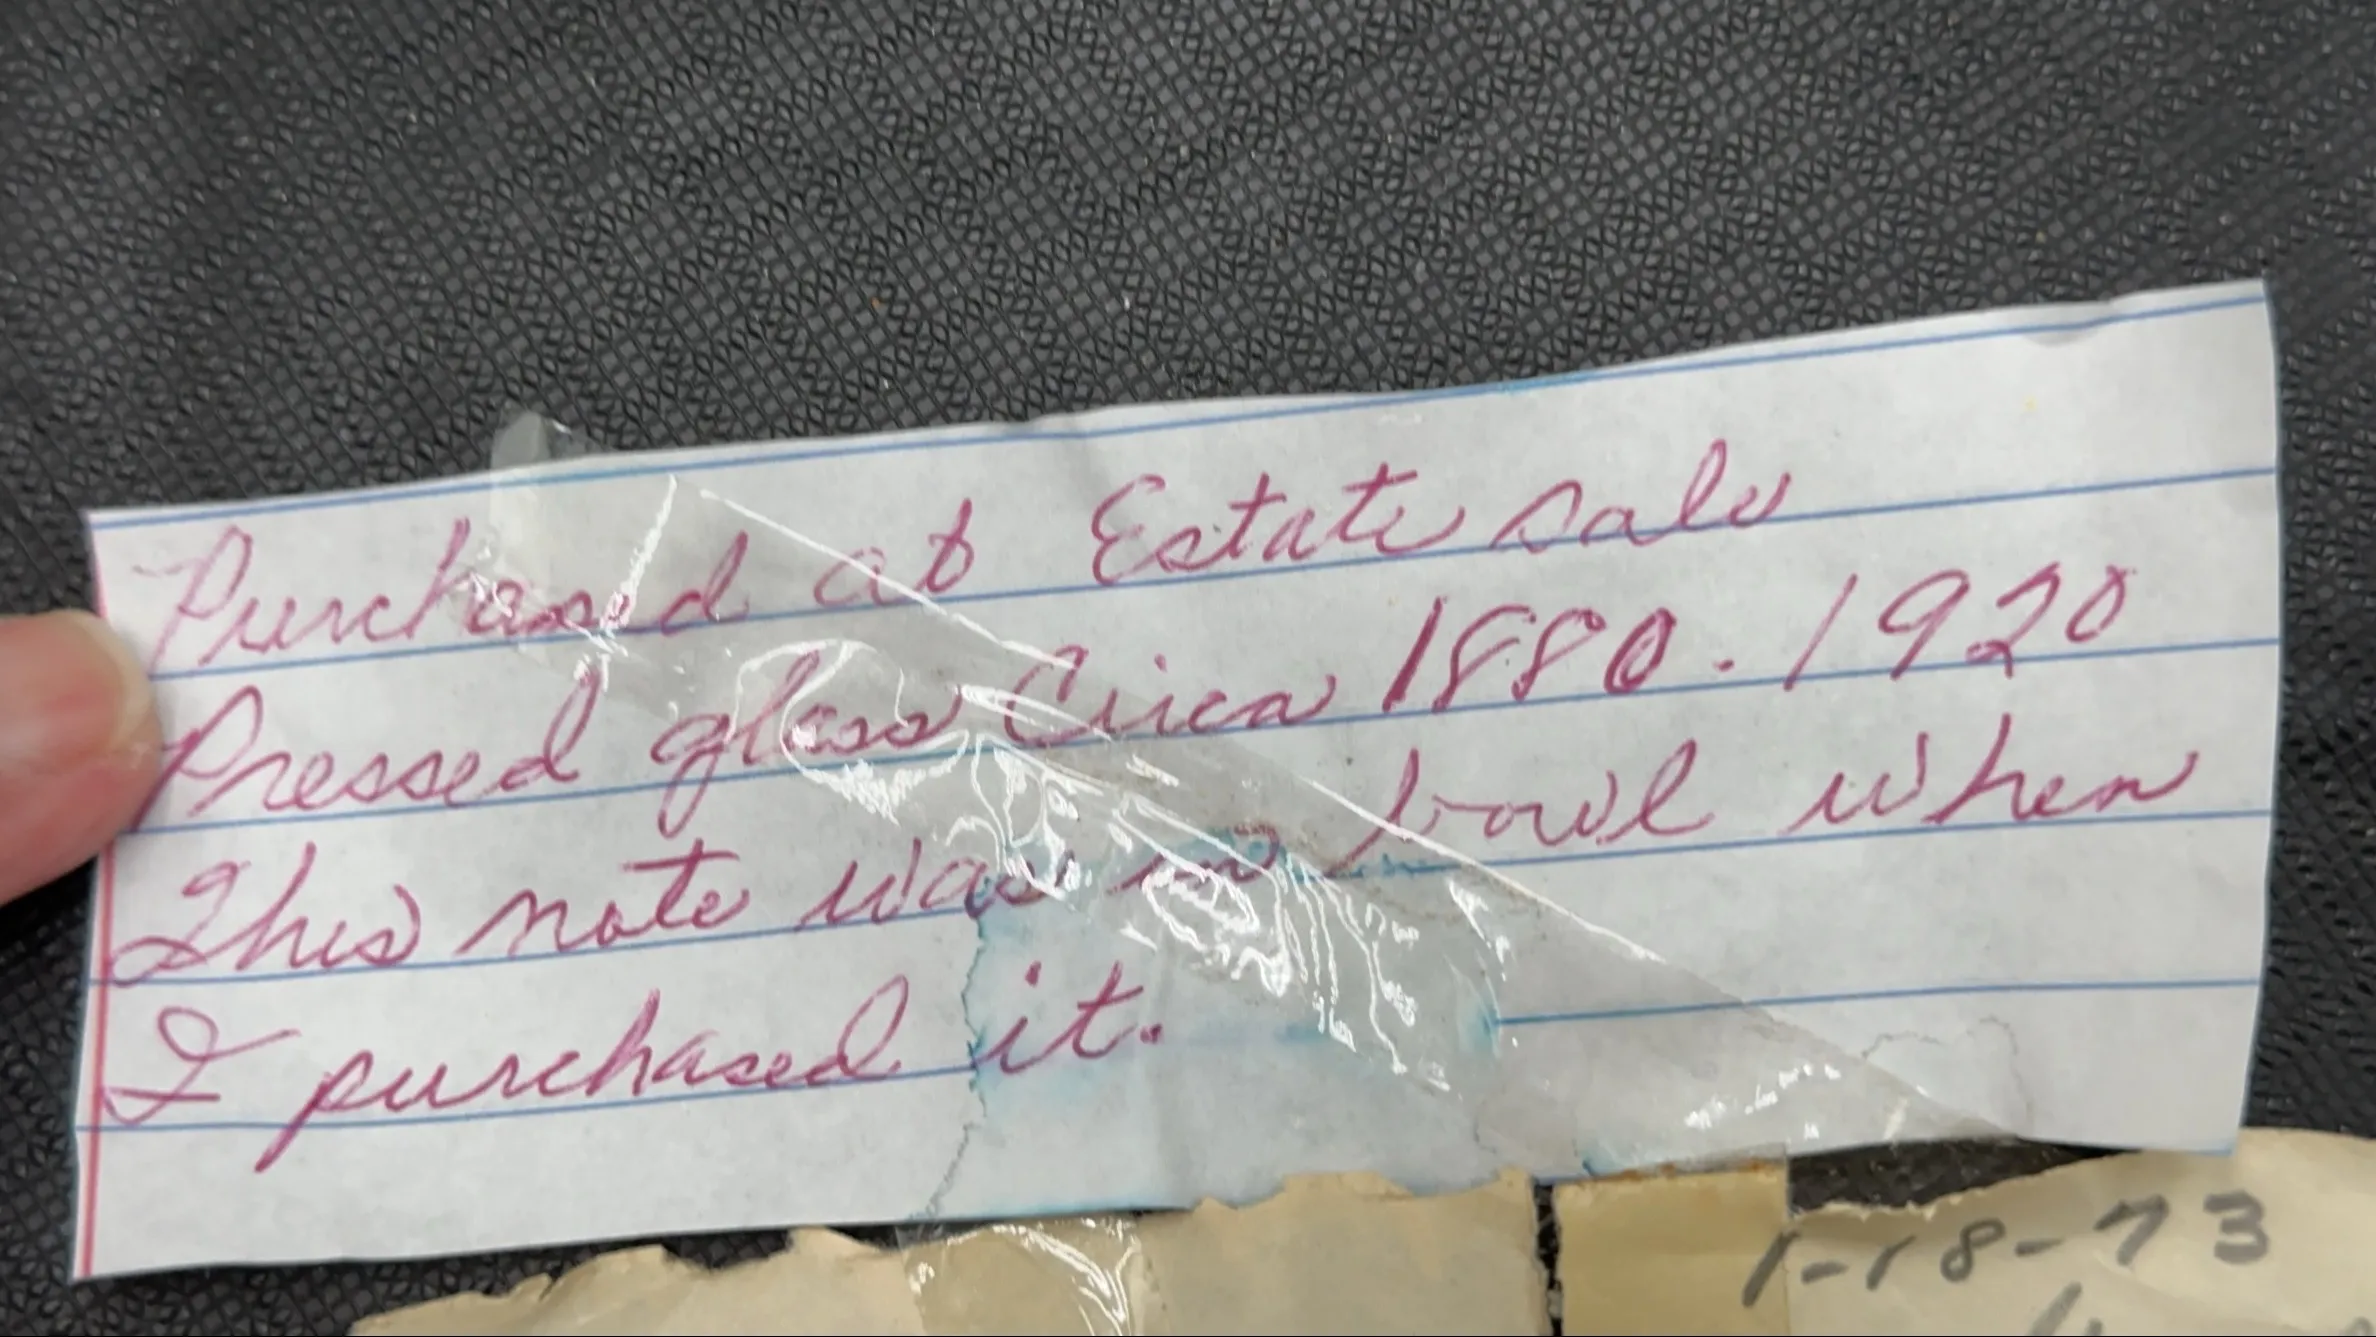 Purchased at Estate sale
Pressed glass Circa 1880-1920
This note was in bowl when
I purchased it.
1-18-73